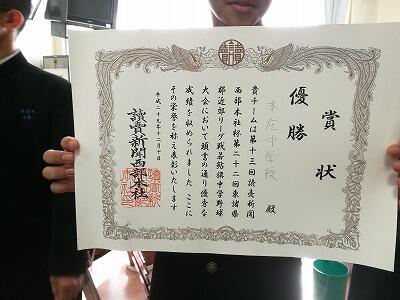 賞状
優勝
本庄中学校 殿
貴チームは第十三回読売新聞
西部本社杯第二十二回東諸県
郡近郊リーグ戦若鮎旗中学野球
大会において頭書の通り優秀な
成績を収められました ここに
その栄誉を称え表彰いたします
平成二十九年十二月十日
讀賣新聞西部本社